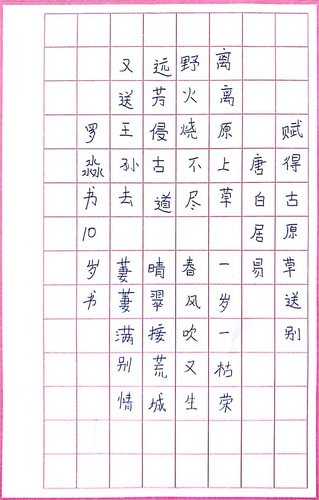 赋得古原草送别
唐白居易
离离原上草 一岁一枯荣
野火烧不尽 春风吹又生
远芳侵古道 晴翠接荒城
又送王孙去 萋萋满别情
罗淼书10岁书